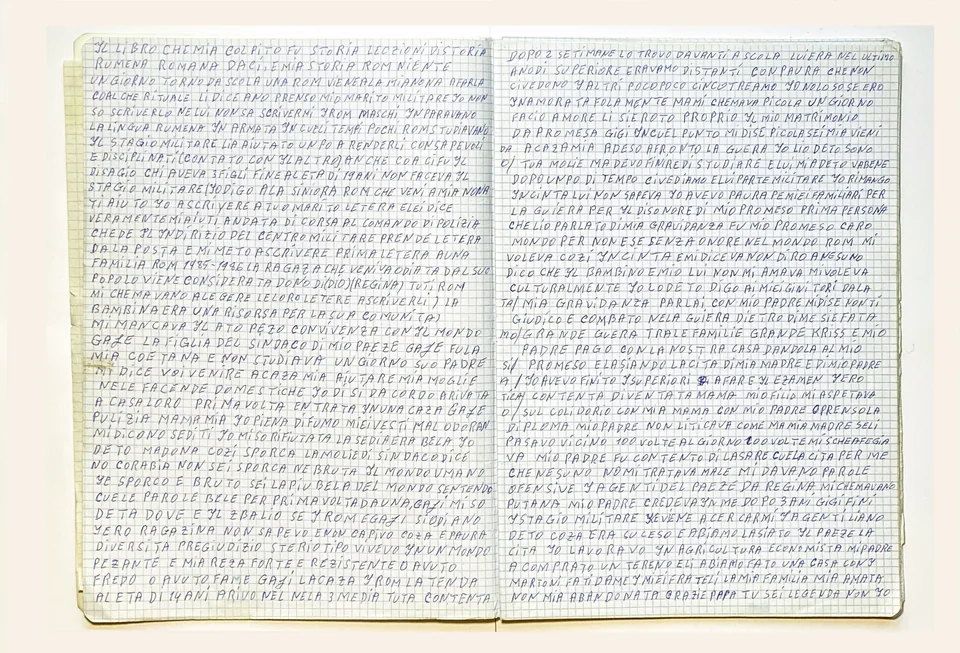 IL LIBRO CHE MIA COLPITO FU STORIA LECZIONI DI STORIA
RUMENA ROMANA DACI, E MIA STORIA ROM NIENTE
UN GIORNO TORNO DA SCOLA UNA ROM VENE A LA MIA NONA A FARLA
COALCHE RITUALE LI DICE ANO PRENSO MIO MARITO MILITARE YO NON
SO SCRIVERLO NE LUI NON SA SCRIVERMI YROM MASCHI YNPARAVANO
LA LINGUA RUMENA YN ARMATA YN CUELI TEMPI POCHI ROM STUDIAVANO
YL STAGIO MILITARE LIA AIUTATO UN PO A RENDERLI CONSAPEVOLI
E DISCIPLINATI (CONTATO CON YLALTRO) ANCHE COA CI FU YL
DISAGIO CHI AVEVA 3 FIGLI FINE ALETA DI ANI NON FACEVA YL
STAGIO MILITARE) YO DIGO A LA SINIORA ROM CHE VENI A MIA NONA
TI AIUTO YO A SCRIVERE A TUO MARITO LETERA E LEI DICE
VERAMENTE MI AIUTI ANDATA DI CORSA AL COMANDO DI POLIZIA
CHEDE PL INDIRIZIO DEL CENTRO MILITARE PRENDE LETERA
DA LA POSTA E MI METO A SCRIVERE PRIMA LETERA A UNA
FAMILIA ROM 1985-1986 LA RAGAZA CHE VENIVA ODIATA DAL SUO
POPOLO VIENE CONSIDERATA DONO DI (DIO) (REGINA) TUTI, ROM
MI CHEMAVANO A LEGERE LE LORO LETERE A SCRIVERLI) LA
BAMBINA ERA UNA RISORSA PER LA SUA COMUNITA)
MI MANCAVA YL ATO PEZO CONVIVENZA CON YL MONDO
GAJE LA FIGLIA DEL SINDACO DI MIO PAEZE GAJE FU LA
MIA COETANA E NON STUDIAVA UN GIORNO SUO PADRE
MI DICE VOI VENIRE A CAZA MIA AJUTARE MIA MOGLIE
NELE FACENDE DOMESTICHE YO DI SI DACORDO ARIVATA
A CASA LORO PRIMA VOLTA ENTRATA YN UNA CAZA GAJE
PULIZIA MAMA MIA YO PIENA DI FUMO MIEI VESTI MALODORAN
MI DICONO SEDITI YO MI SO RIFIUTATA LA SEDIA ERA BELA YO
DETO MADONA COZI SPORCA LA MOLIE DI SINDACO DICE
NO CORABIA NON SEI SPORCA NE BRUTA YL MONDO UMANO
YE SPORCO E BRUTO SEI LA PIU BELA DEL MONDO SENTENDO
CUELE PAROLE BELE PER PRIMA VOLTA DA UNA GAJI MI SO
DETA DOVE E YL ZBALIO SE YROM E GAJI SI ODIANO
YERO RAGAZINA NON SAPEVO E NON CAPIVO COZA E PAURA
DIVERSITA PREGIUDIZIO STERIOTIPO VIVEVO YN UN MONDO
PEZANTE E MIA REZA FORTE, E REZISTENTE O AVUTO
FREDO O AVUTO FAME GAJI LA CAZA Y ROM LA TENDA
A LETA DI 14 ANI ARIVO NEL NELA 3 MEDIA TUTA CONTENTA
DOPO 2 SETIMANE LO TROVO DAVANTI A SCOLA LUI ERA NEL ULTIMO
ANO DI SUPERIORE ERAVAMO DISTANTI CON PAURA CHE NON
CI VEDONO YALTRI POCO POCO CI NCUTREAMO YO NO LO SO SE ERO
YNAMORATA FOLAMENTE MA MI CHEMAVA PICOLA UN GIORNO
FACIO AMORE LI SI E ROTO PROPRIO YL MIO MATRIMONIO
DA PROMESA GIGI YN CUEL PUNTO MI DISE PICOLA SEI MIA VIENI
DA ACAZA MIA ADESO AFRONTO LA GUERA YO LIO DETO SONO
O/ TUA MOLIE MA DEVO FINIRE DI STUDIARE E LUI MIA DETO VA BENE
DOPO UN PO DI TEMPO CI VEDIAMO E LUI PARTE MILITARE YO RIMANGO
YNCINTA LUI NON SAPEVA YO AVEVO PAURA PE MIEI FAMILIARI PER
LA GUIERA PER YL DISONORE DI MIO PROMESO PRIMA PERSONA
CHE LIO PARLATO DI MIA GRAVIDANZA FU MIO PROMESO CARO
MONDO PER NON ESE SENZA ONORE NEL MONDO ROM MI
VOLEVA COZI YNCINTA E MI DICEVA NON DIRO A NESUNO
DICO CHE YL BAMBINO E MIO LUI NON MI AMAVA MI VOLEVA
CULTURALMENTE YO LO DETO DIGO AI MIEI GINITORI DALA
TA/ MIA GRAVIDANZA PARLAI, CON MIO PADRE MI DISE NON TI
GIUDICO E COMBATO NELA GUIERA DIETRO DI ME SIE FATA
MO/ GRANDE GUERA TRA LE FAMILIE GRANDE KRISS E MIO
PADRE PAGO CON LA NOSTRA CASA DANDOLA AL MIO
SI/ PROMESO E LASIANDO LA CITA DI MIA MADRE E DI MIO PADRE
A / YO AVEVO FINITO YSUPERIORI A FARE YLEZAMEN YERO
TICA CONTENTA DIVENTATA MAMA MIO FILIO MI ASPETAVA
O/ SUL COLIDORIO CON MIA MAMA CON MIO PADRE O PRENSO LA
DIPLOMA MIO PADRE NON LITICAVA COME MIA MADRE SE LI
PASAVO VICINO 100 VOLTE AL GIORNO 100 VOLTE MI SCHEAFEGIA
VA MIO PADRE FU CONTENTO DI LASARE CUELA CITA PER ME
CHE NESUNO NO MI TRATAVA MALE MI DAVANO PAROLE
OFENSIVE YAGENTI DEL PAEZE DA REGINA MI CHEMAVANO
PUTANA MIO PADRE CREDEVA YN ME DOPO 3 ANI GIGI FINI
YSTAGIO MILITARE YEVENE A CERCARMI, YAGENTI LIANO
DETO COZA ERA SUCESO E ABIAMO LASIATO YL PAEZE LA
CITA YO LAVORAVO YN AGRICULTURA ECONOMISTA MI PADRE
A COMPRATO UN TERENO E LI ABIAMO FATO UNA CASA CON Y
MARTONI FATI DA ME YMIEI FRATELI LA MIA FAMILIA MIA AMATA
NON MIA ABANDONATA GRAZIE PAPA TU SEI LEGENDA NON YO